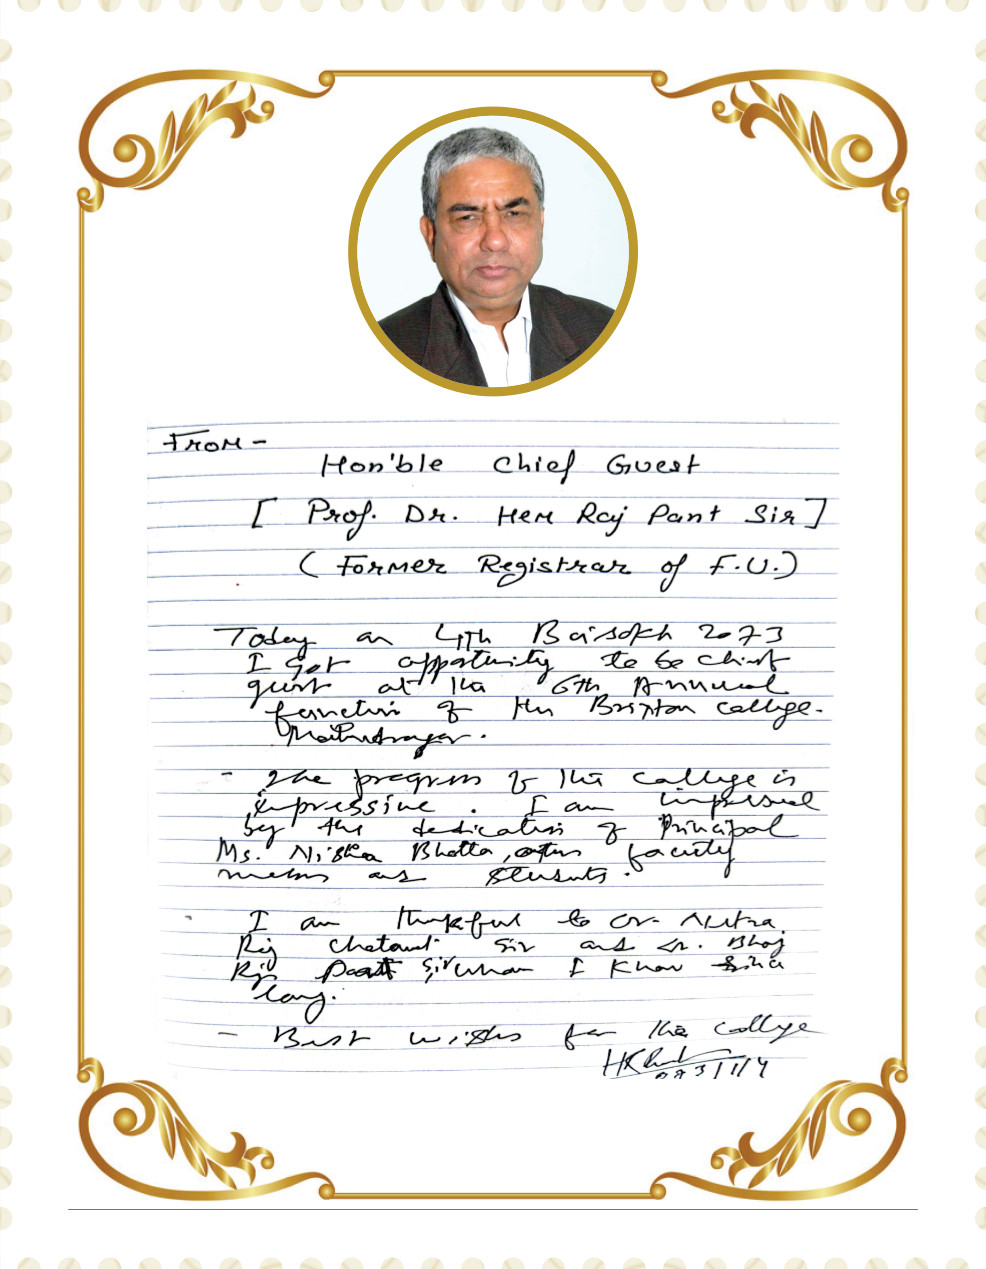 From -
Hon'ble Chief Guest
[ Prof. Dr. Hem Raj Pant Sir ]
( Former Registrar of F.U.)
Today on 4th Baisakh 2073
I got opportunity to be chief
guest at the 6th Annual
function of the Brixton college.
Mahendranagar.
- The progress of the college is
impressive. I am impressed
by the dedication of Principal
Ms. Nisha Bhatta, other faculty
members and students.
- I am thankful to Dr. Netra
Raj Chataut Sir and Dr. Bhoj
Raj Pant Sir whom I know since
long.
- Best wishes for the college
073/1/4